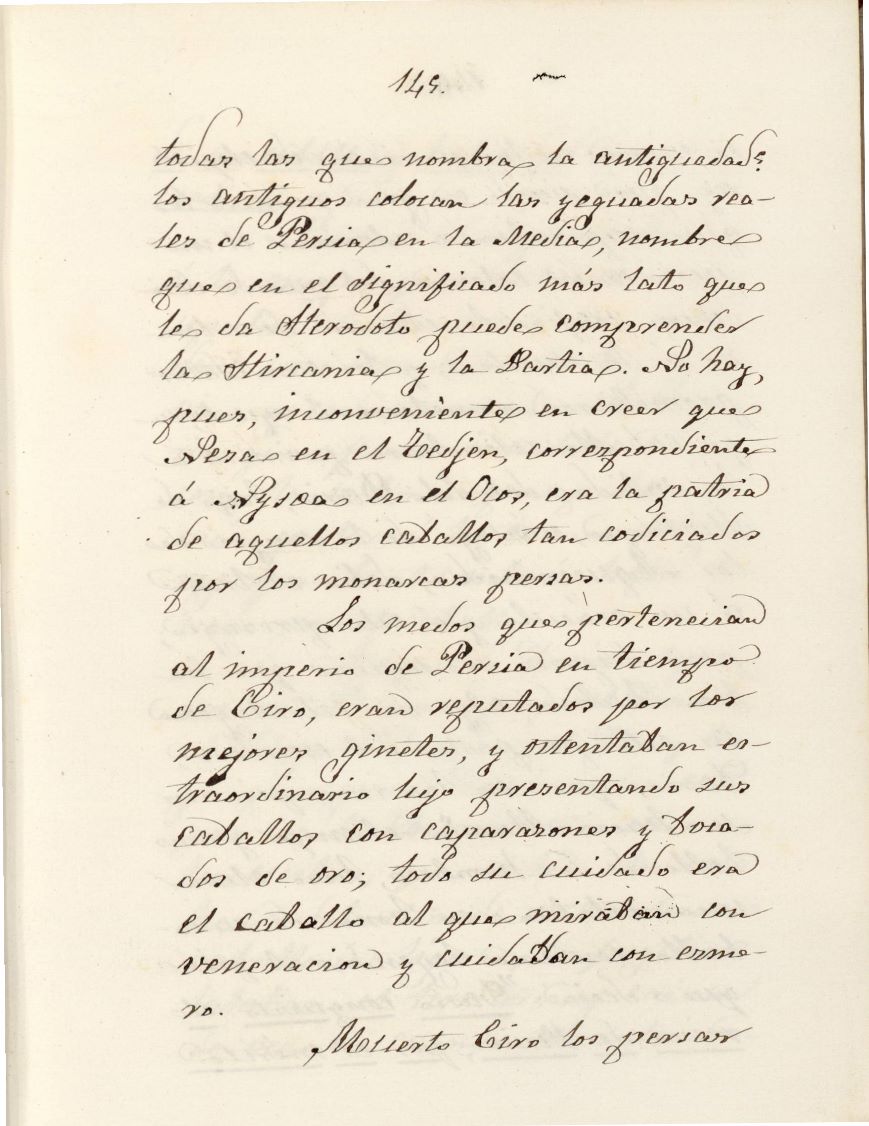 145.
todas las que nombra la antiguedad:
los antiguos colocan las yeguadas rea-
les de Persia en la Media, nombre
que en el significado más lato que
le da Herodoto puede comprender
la Hircania y la Partia. No hay,
pues, inconveniente en creer que
Nesa en el Tedjen, correspondiente
á Nysœa en el Ocos, era la patria
de aquellos caballos tan codiciados
por los monarcas persas.
Los medos que pertenecian
al imperio de Persia en tiempo
de Ciro, eran reputados por los
mejores ginetes, y ostentaban es-
traordinario lujo presentando sus
caballos con caparazones y boca-
dos de oro; todo su cuidado era
el caballo al que miraban con
veneracion y cuidaban con esme-
ro.
Muerto Ciro los persas